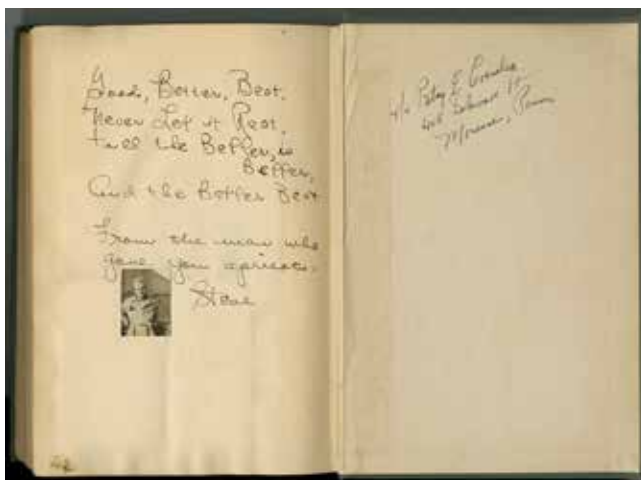 Good, Better, Best.
Never Let it Rest,
till the Better, is
Better,
And the Better Best
From the man who
gave you apricots.
Steve
c/o Patsy E.
Penn